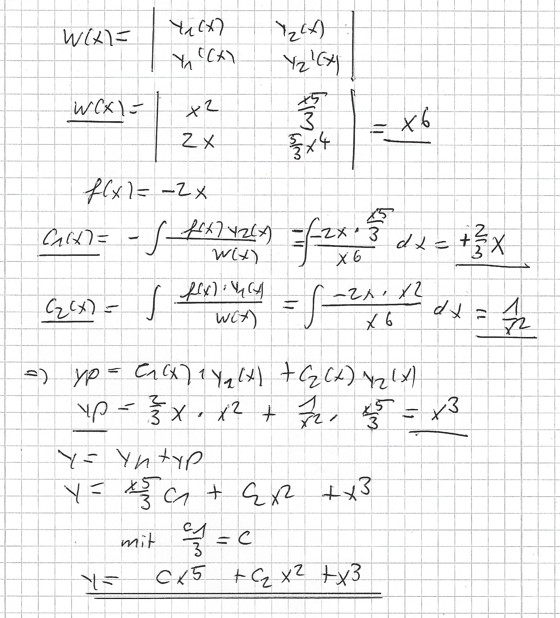 W(x) = | y₁(x) y₂(x) |
| y₁'(x) y₂'(x) |
W(x) = | x² x⁵/3 | = x⁶
| 2x 5/3 x⁴ |
f(x) = -2x
C₁(x) = - ∫ f(x) y₂(x) / W(x) = -∫ -2x · x⁵/3 / x⁶ dx = +2/3 x
C₂(x) = ∫ f(x) · y₁(x) / W(x) = ∫ -2x · x² / x⁶ dx = 1/x²
⇒) yp = C₁(x) · y₁(x) + C₂(x) y₂(x)
yp = 2/3 x · x² + 1/x² · x⁵/3 = x³
y = yh + yp
y = x⁵/3 C₁ + C₂ x² + x³
mit C₁/3 = C
y = Cx⁵ + C₂ x² + x³